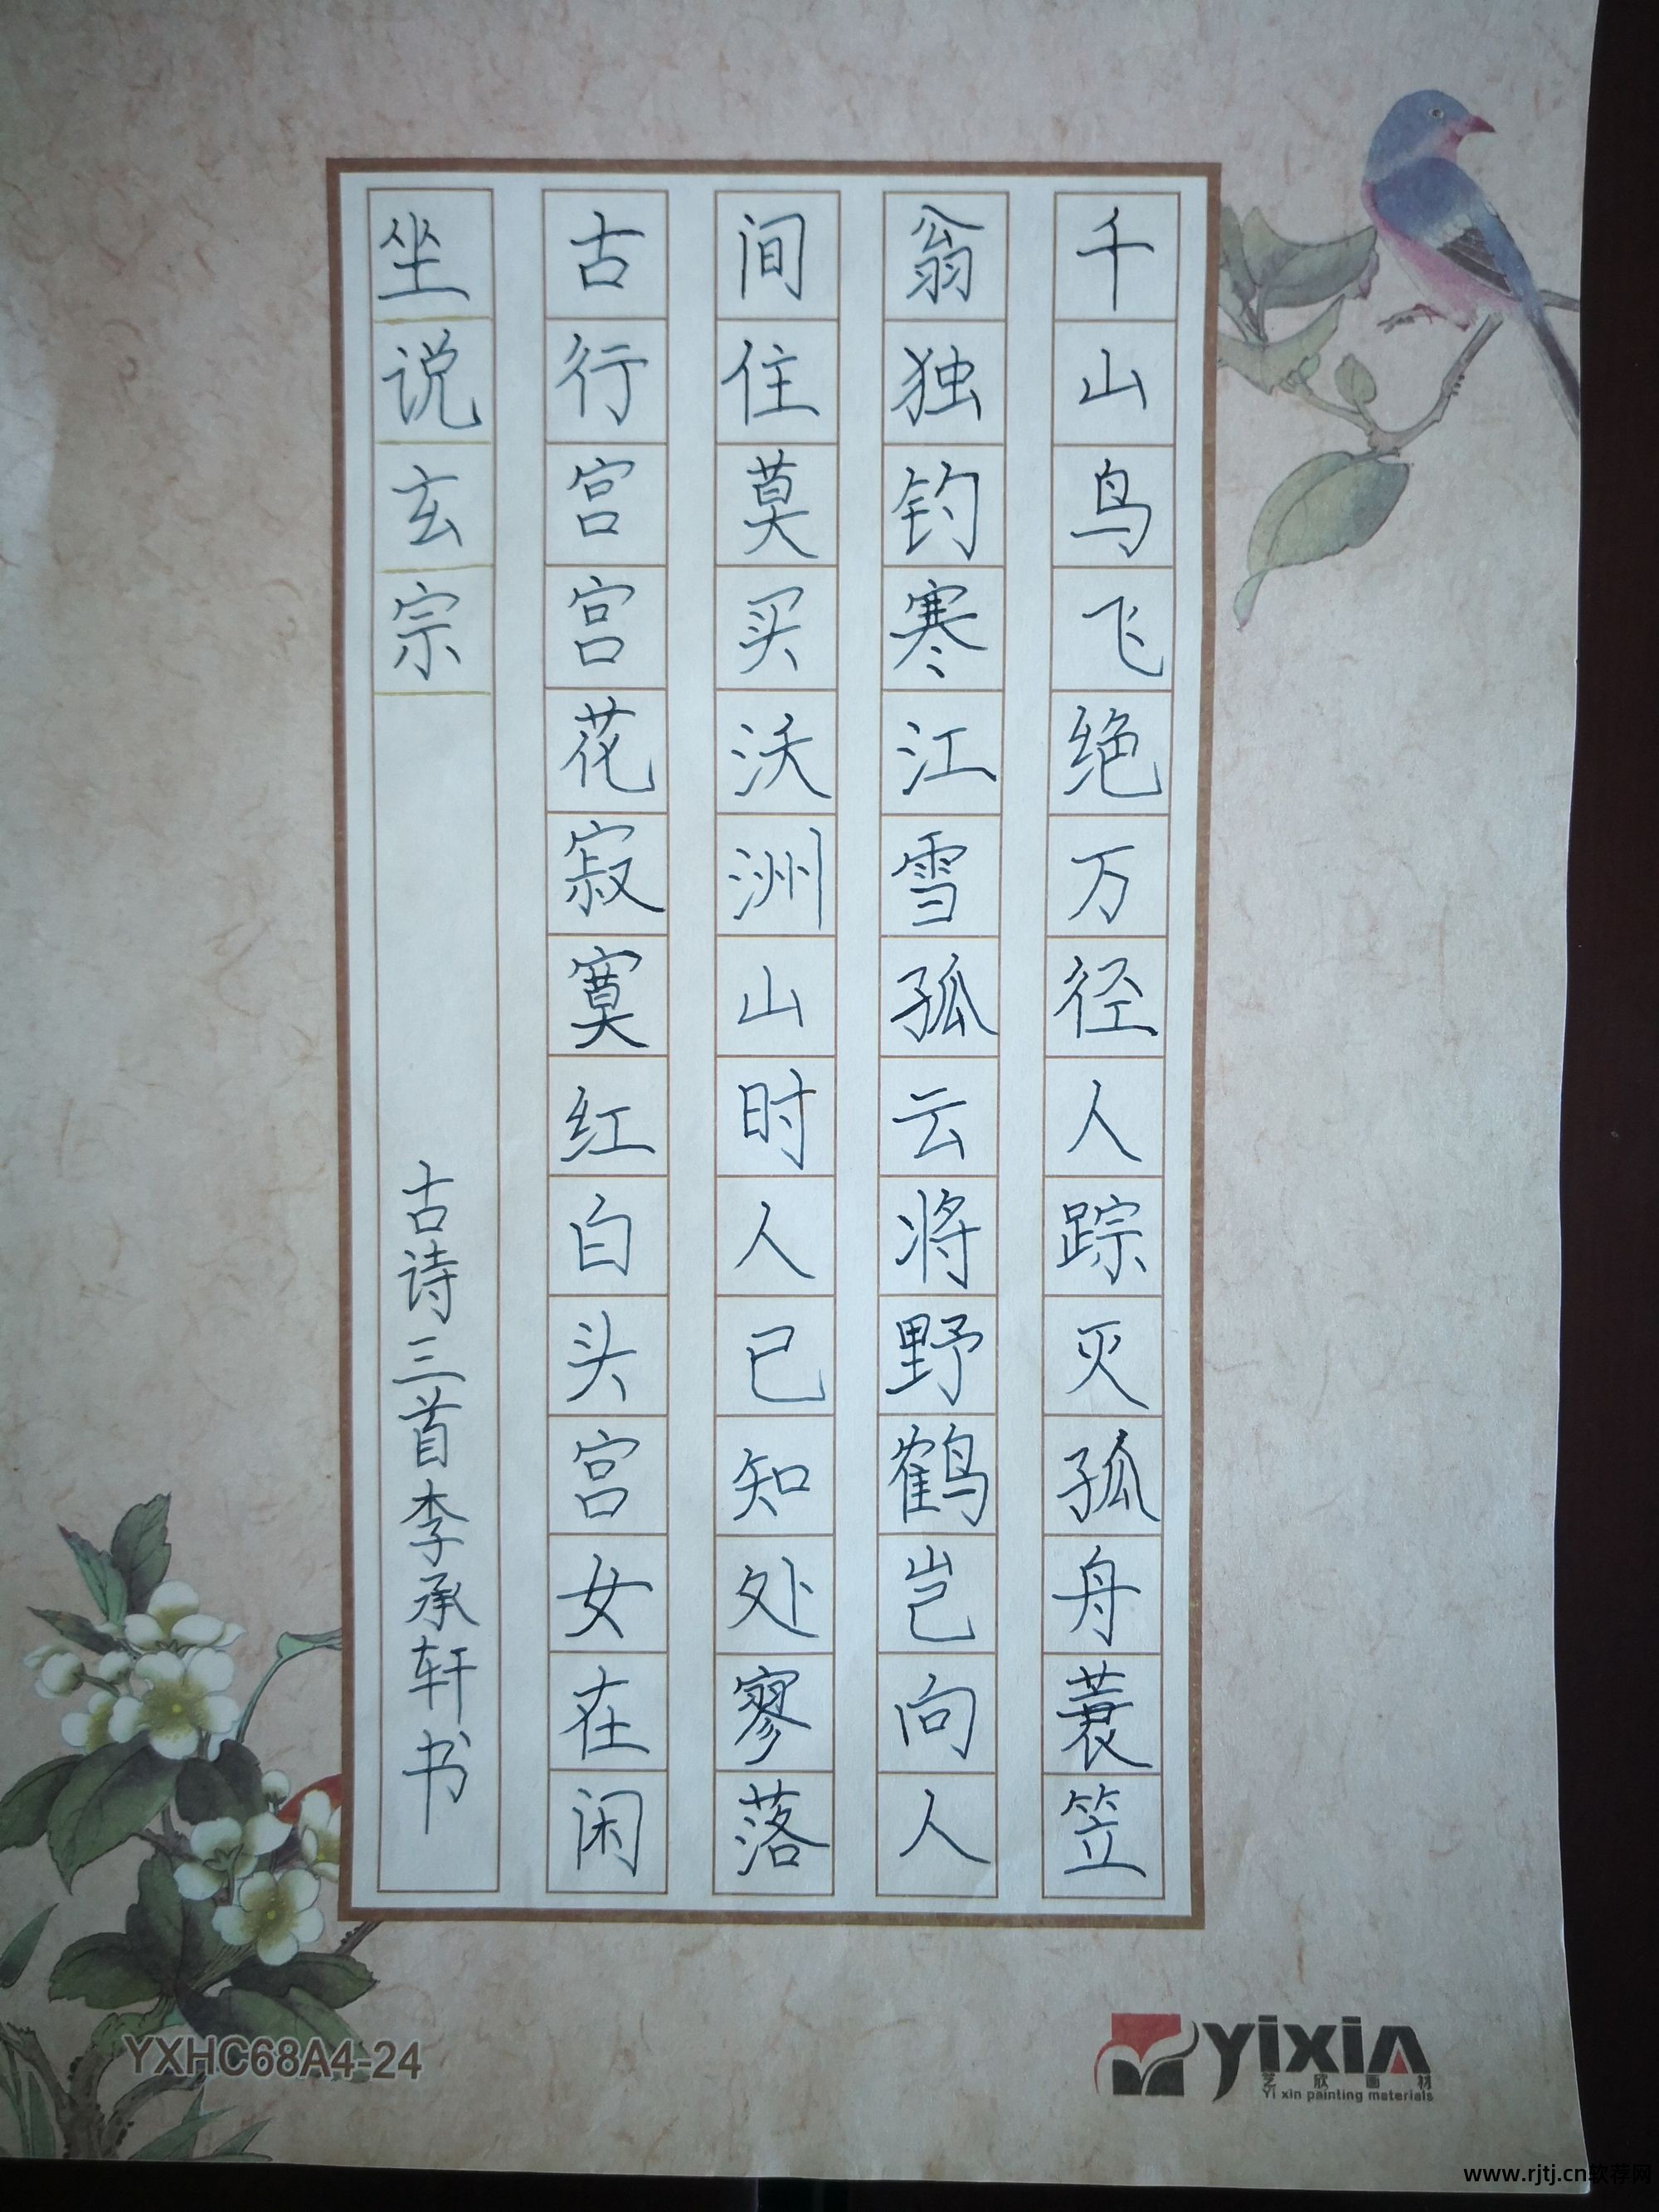 千山鸟飞绝万径人踪灭孤舟蓑笠
翁独钓寒江雪孤云将野鹤岂向人
间住莫买沃洲山时人已知处寥落
古行宫宫花寂寞红白头宫女在闲
坐说玄宗
古诗三首李承轩书
YXHC68A4-24
yixin
艺欣画材
Yi xin painting materials
www.rjtj.cn软荐网